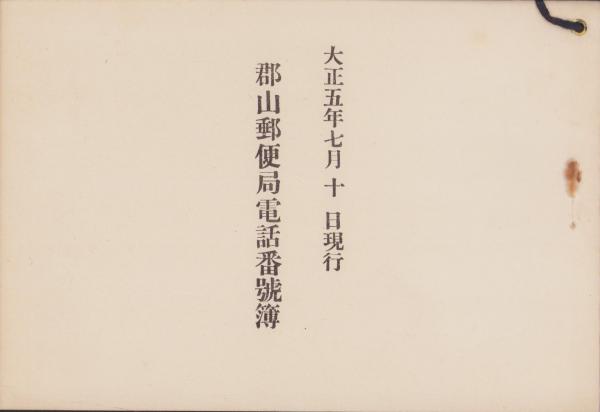 大正五年七月十日現行
郡山郵便局電話番號簿